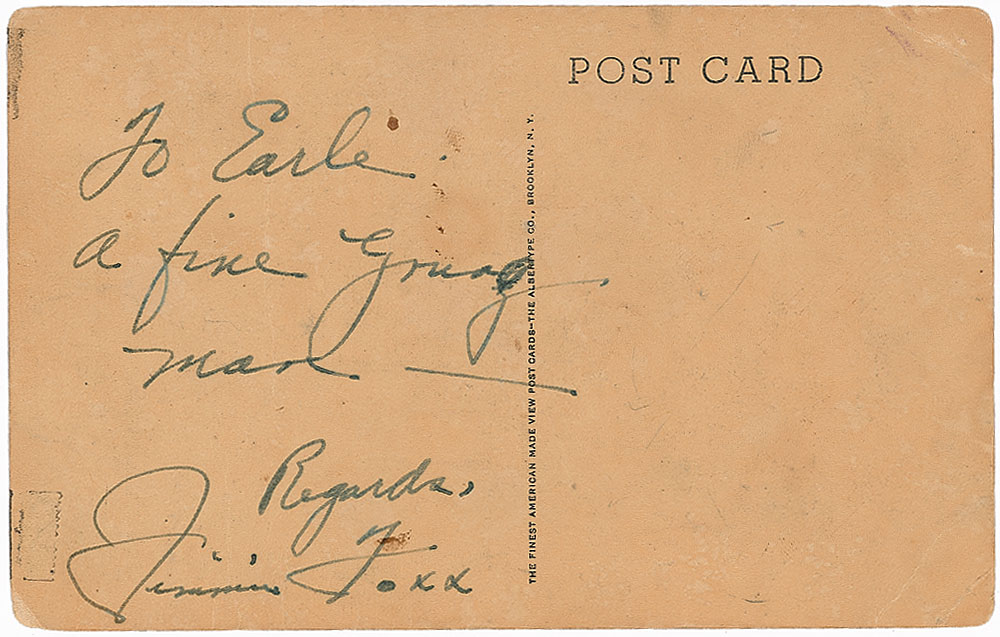 POST CARD
To Earle.
a fine young
man —
Regards,
Jimmie Foxx
THE FINEST AMERICAN MADE VIEW POST CARDS—THE ALBERTYPE CO., BROOKLYN, N. Y.